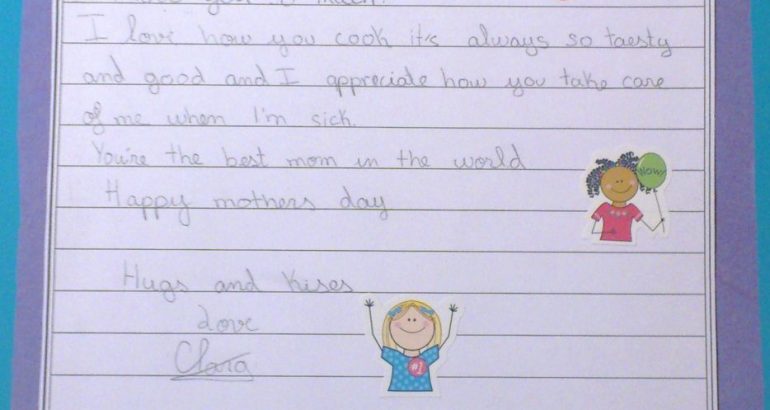 you
I love how you cook it's always so taesty
and good and I appreciate how you take care
of me when I'm sick.
You're the best mom in the world
Happy mothers day
Wow!
Hugs and Kises
Love
Clara
#1